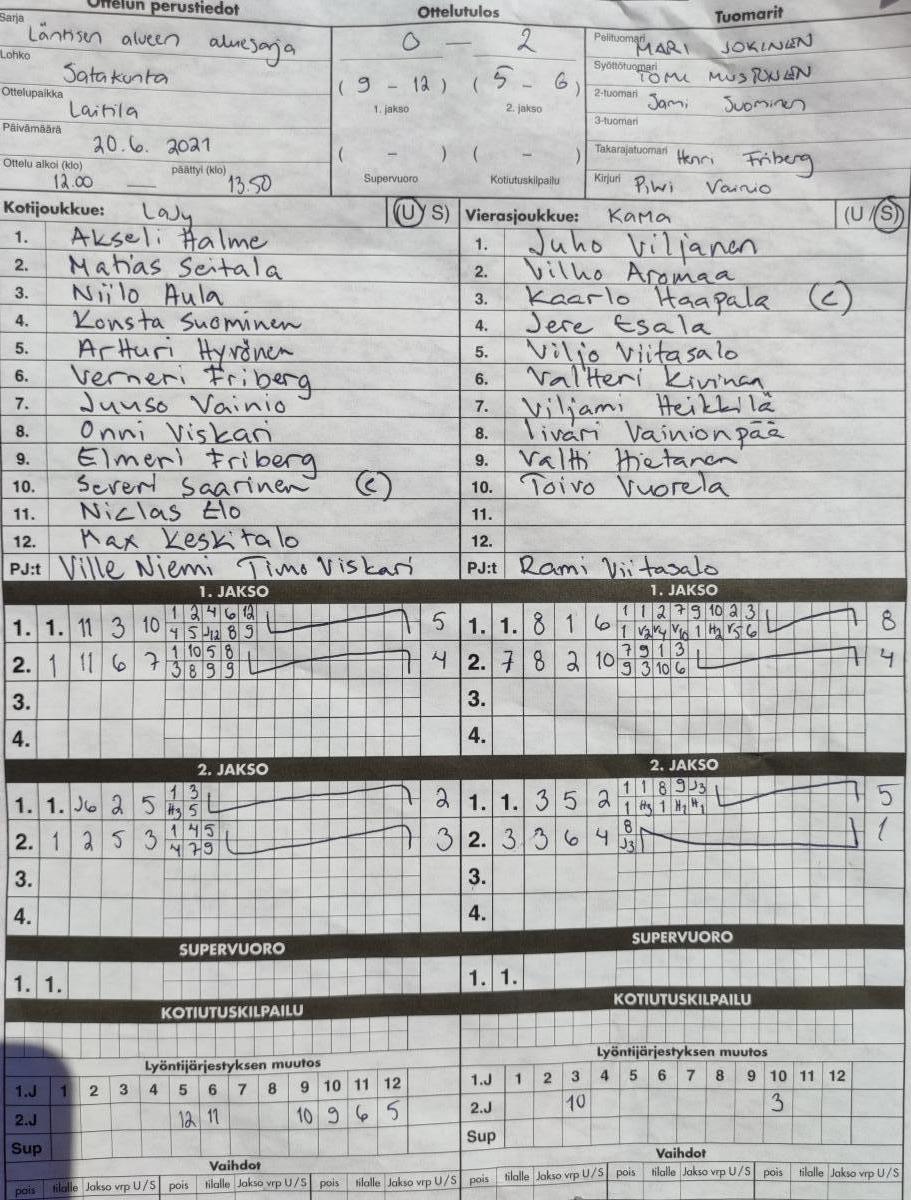 Ottelun perustiedot
Sarja Läntisen alueen aluesarja
Lohko Satakunta
Ottelupaikka Laitila
Päivämäärä 20.6. 2021
Ottelu alkoi (klo) päättyi (klo)
12.00 — 13.50
Ottelutulos
0 — 2
( 9 - 12 ) ( 5 - 6 )
1. jakso 2. jakso
( - ) ( - )
Supervuoro Kotiutuskilpailu
Tuomarit
Pelituomari MARI JOKINEN
Syöttötuomari TOMI MUSTONEN
2-tuomari Jami Suominen
3-tuomari
Takarajatuomari Henri Friberg
Kirjuri Pilvi Vainio
Kotijoukkue: LaJy (U/S)
1. Akseli Halme
2. Matias Seitala
3. Niilo Aula
4. Konsta Suominen
5. Artturi Hyrönen
6. Verneri Friberg
7. Juuso Vainio
8. Onni Viskari
9. Elmeri Friberg
10. Severi Saarinen (C)
11. Niclas Elo
12. Max Keskitalo
PJ:t Ville Niemi Timo Viskari
Vierasjoukkue: KaMa (U/S)
1. Juho Viljanen
2. Vilho Aromaa
3. Kaarlo Haapala (C)
4. Jere Esala
5. Viljo Viitasalo
6. Valtteri Kivinen
7. Viljami Heikkilä
8. Iivari Vainionpää
9. Valtti Hietanen
10. Toivo Vuorela
11.
12.
PJ:t Rami Viitasalo
1. JAKSO
1. 1. 11 3 10 1 2 4 6 12 5
4 5 J12 8 9
2. 1 11 6 7 1 10 5 8 4
3 8 9 9
3.
4.
1. JAKSO
1. 1. 8 1 6 1 1 2 7 9 10 2 3 8
1 V2 V4 V10 1 H2 V5 6
2. 7 8 2 10 7 9 1 3 4
9 3 10 6
3.
4.
2. JAKSO
1. 1. J6 2 5 1 3 2
H3 5
2. 1 2 5 3 1 4 5 3
4 7 9
3.
4.
2. JAKSO
1. 1. 3 5 2 1 1 8 9 J3 5
1 H3 1 H1 H1
2. 3 3 6 4 8 1
J3
3.
4.
SUPERVUORO
1. 1.
SUPERVUORO
1. 1.
KOTIUTUSKILPAILU
KOTIUTUSKILPAILU
Lyöntijärjestyksen muutos
1.J 1 2 3 4 5 6 7 8 9 10 11 12
2.J 12 11 10 9 6 5
Sup
Lyöntijärjestyksen muutos
1.J 1 2 3 4 5 6 7 8 9 10 11 12
2.J 10 3
Sup
Vaihdot
pois tilalle Jakso vrp U/S pois tilalle Jakso vrp U/S pois tilalle Jakso vrp U/S
Vaihdot
pois tilalle Jakso vrp U/S pois tilalle Jakso vrp U/S pois tilalle Jakso vrp U/S